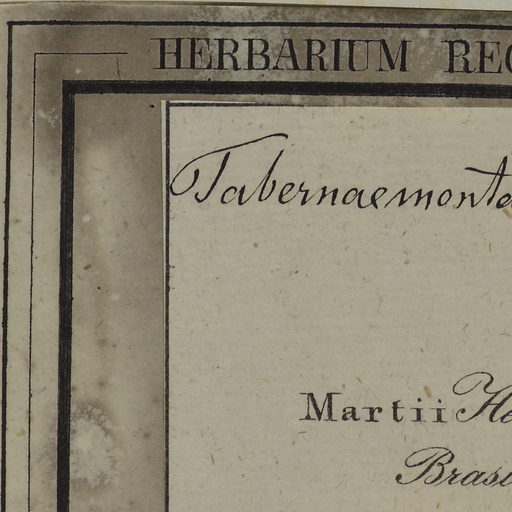 HERBARIUM REG
Tabernaemonta
Martii He
Brasi